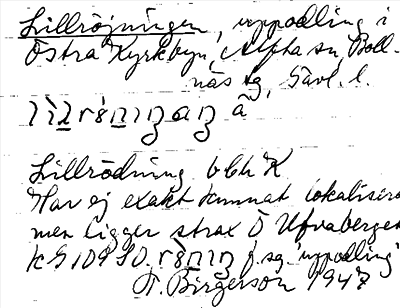 Lillröjningen, uppodling i
Östra Kyrkbyn, Alfta sn, Boll-
näs tg, Gävl. l.
Lillrödning bbh K
Har ej exakt kunnat lokalisera
men ligger strax Ö Ufvaberget
k G 109 SO. f. sg. "uppodling"
F. Birgerson 1947